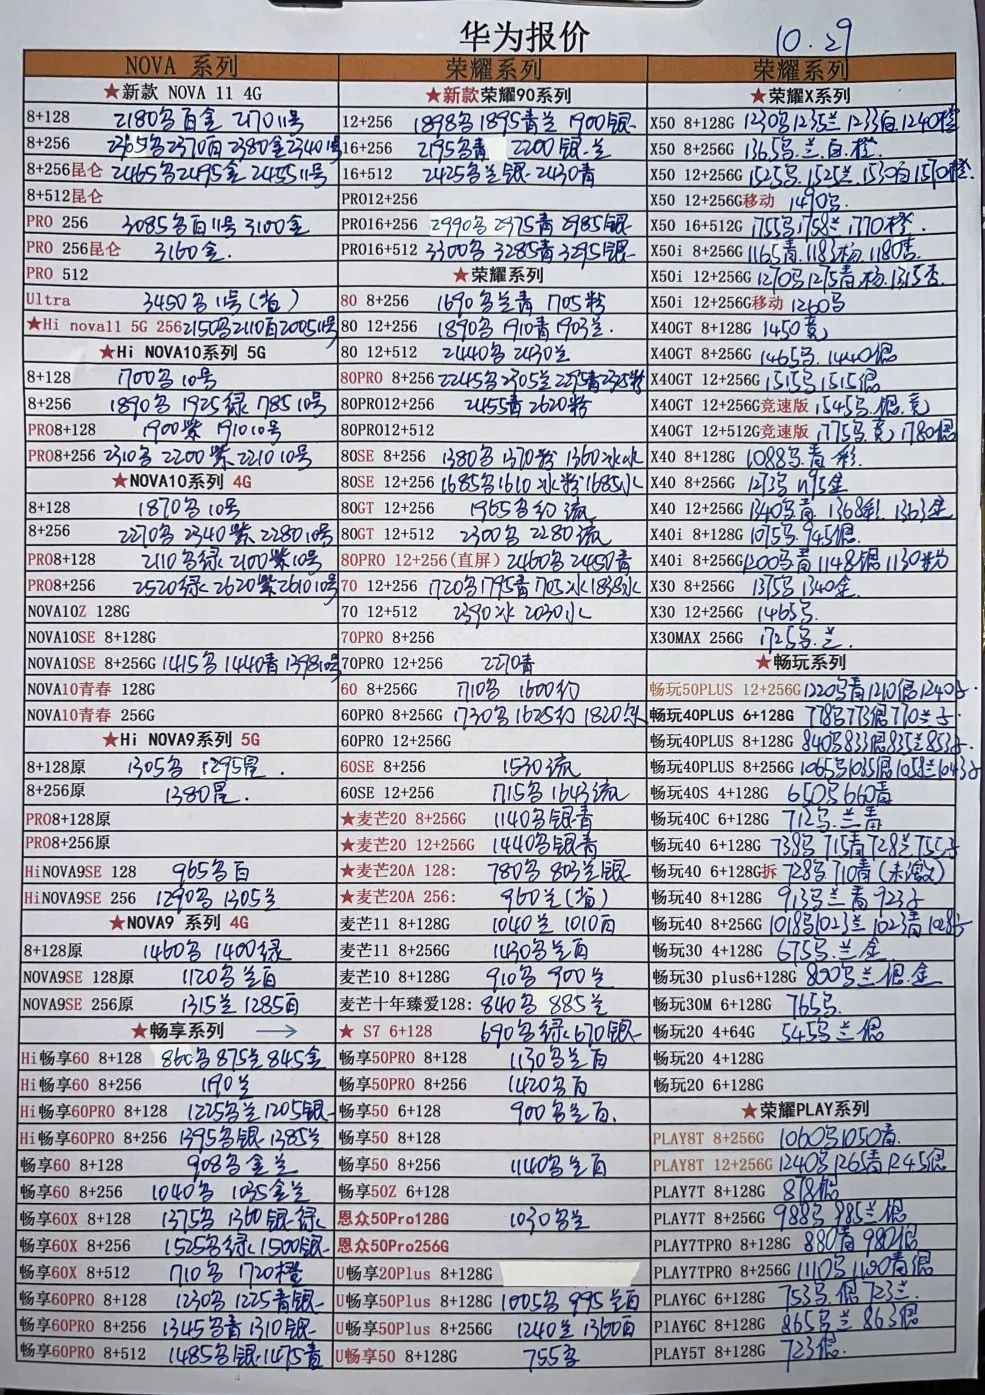 华为报价
10.29
NOVA 系列
★新款 NOVA 11 4G
8+128 2180多百金 2170 11号
8+256 2365多2370百2380金2340 11号
8+256昆仑 2465多2495金2455 11号
8+512昆仑
PRO 256 3085多百11号 3100金
PRO 256昆仑 3160金.
PRO 512
Ultra 3450多11号(省)
★Hi nova11 5G 256 2150多2110百2005 11号
★Hi NOVA10系列 5G
8+128 1700多10号
8+256 1890多 1925绿 1785 10号
PRO8+128 1900紫 1910 10号
PRO8+256 2310多 2200紫 2210 10号
★NOVA10系列 4G
8+128 1870多10号
8+256 2270多2340紫2280 10号
PRO8+128 2110多绿2100紫10号
PRO8+256 2520绿2620紫2610 10号
NOVA10Z 128G
NOVA10SE 8+128G
NOVA10SE 8+256G 1415多1440青1398 10号
NOVA10青春 128G
NOVA10青春 256G
★Hi NOVA9系列 5G
8+128原 1305多 1295昆.
8+256原 1380昆.
PRO8+128原
PRO8+256原
HiNOVA9SE 128 965多百
HiNOVA9SE 256 1290多1305兰
★NOVA9 系列 4G
8+128原 1460多 1400绿
NOVA9SE 128原 1120多兰百
NOVA9SE 256原 1315兰 1285百
★畅享系列 →
Hi畅享60 8+128 860多875兰845金
Hi畅享60 8+256 1190兰
Hi畅享60PRO 8+128 1225多兰1205银
Hi畅享60PRO 8+256 1395多银 1385兰
畅享60 8+128 908多金兰
畅享60 8+256 1040多 1035金兰
畅享60X 8+128 1375多 1360银绿
畅享60X 8+256 1525多绿1500银
畅享60X 8+512 1710多 1720橙
畅享60PRO 8+128 1230多 1225青银
畅享60PRO 8+256 1345多青1310银
畅享60PRO 8+512 1485多银1475青
荣耀系列
★新款荣耀90系列
12+256 1898多1895青兰 1900银
16+256 2195多青 2200银.兰
16+512 2425多兰银 2430青
PRO12+256
PRO16+256 2990多 2975青2985银
PRO16+512 3300多 3285青3295银
★荣耀系列
80 8+256 1690多兰青 1705粉
80 12+256 1890多 1910青1903兰.
80 12+512 2440多 2430兰
80PRO 8+256 2245多2305兰2295青2325粉
80PRO12+256 2455青 2620粉
80PRO12+512
80SE 8+256 1380多1370粉 1360冰水
80SE 12+256 1685多1610冰粉1685水
80GT 12+256 1965多约 流
80GT 12+512 2300多 2280流
80PRO 12+256(直屏) 2460多2450青
70 12+256 1720多1795青1705冰1838水
70 12+512 2390冰 2030水
70PRO 8+256
70PRO 12+256 2270青
60 8+256G 1710多 1600约
60PRO 8+256G 1730多1625约 1820冰
60PRO 12+256G
60SE 8+256 1530流
60SE 12+256 1715多1643流
★麦芒20 8+256G 1140多银青
★麦芒20 12+256G 1440多银青
★麦芒20A 128: 780多 803兰银
★麦芒20A 256: 960兰(省)
麦芒11 8+128G 1040兰 1010百
麦芒11 8+256G 1130多兰百
麦芒10 8+128G 910多 900兰
麦芒十年臻爱128: 840多 885兰
★ S7 6+128 690多绿670银
畅享50PRO 8+128 1130多兰百
畅享50PRO 8+256 1420多百
畅享50 6+128 900多兰百.
畅享50 8+128
畅享50 8+256 1140多兰百
畅享50Z 6+128
恩众50Pro128G 1030多兰
恩众50Pro256G
U畅享20Plus 8+128G
U畅享50Plus 8+128G 1005多995兰百
U畅享50Plus 8+256G 1240兰 1360百
U畅享50 8+128G 755多
荣耀系列
★荣耀X系列
X50 8+128G 1230多1235兰1233白1240橙
X50 8+256G 1365多.兰.白.橙.
X50 12+256G 1525多.1525兰.1530白1570橙.
X50 12+256G移动 1490多.
X50 16+512G 1755多1758兰1770橙.
X50i 8+256G 1165青.1183杨.1180杏.
X50i 12+256G 1270多1275青.杨.1315杏.
X50i 12+256G移动 1260多
X40GT 8+128G 1450竞
X40GT 8+256G 1465多.1440偶
X40GT 12+256G 1515多1515偶
X40GT 12+256G竞速版 1545多.偶.竞
X40GT 12+512G竞速版 1775多.竞.1780偶
X40 8+128G 1088多.青.彩.
X40 8+256G 1273多1195金
X40 12+256G 1340多青.1368彩.1363金
X40i 8+128G 1075多.945偶.
X40i 8+256G 1200多青1148银1130粉
X30 8+256G 1375多1340金.
X30 12+256G 1465多.
X30MAX 256G 1725多.兰.
★畅玩系列
畅玩50PLUS 12+256G 1220多青1210偶1240子.
畅玩40PLUS 6+128G 778多773偶770兰子.
畅玩40PLUS 8+128G 840多833偶835兰853子.
畅玩40PLUS 8+256G 1065多1035偶1058兰1043子
畅玩40S 4+128G 650多660青
畅玩40C 6+128G 712多.兰青
畅玩40 6+128G 738多715青728兰755子
畅玩40 6+128G拆 728多710青(未激)
畅玩40 8+128G 913多兰青923子
畅玩40 8+256G 1018多1023兰1023青1028子
畅玩30 4+128G 675多.兰金
畅玩30 plus6+128G 800多兰偶.金
畅玩30M 6+128G 765多.
畅玩20 4+64G 545多兰偶
畅玩20 4+128G
畅玩20 6+128G
★荣耀PLAY系列
PLAY8T 8+256G 1060多1050青.
PLAY8T 12+256G 1240多1265青1245偶
PLAY7T 8+128G 878偶
PLAY7T 8+256G 988多985兰偶
PLAY7TPRO 8+128G 880青980偶
PLAY7TPRO 8+256G 1110多1100青偶
PLAY6C 6+128G 753多.偶723兰.
PlAY6C 8+128G 865多兰863偶
PLAY5T 8+128G 723偶.